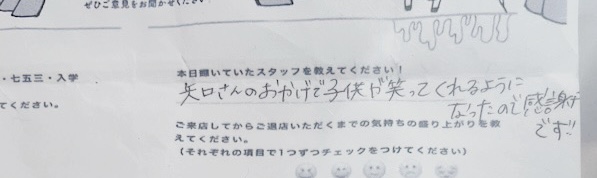 ぜひご意見をお聞かせください。
・七五三・入学
てください。
本日輝いていたスタッフを教えてください！
矢口さんのおかげで子供が笑ってくれるように
なったので感謝
です!!
ご来店してからご退店いただくまでの気持ちの盛り上がりを教
えてください。
(それぞれの項目で1つずつチェックをつけてください)